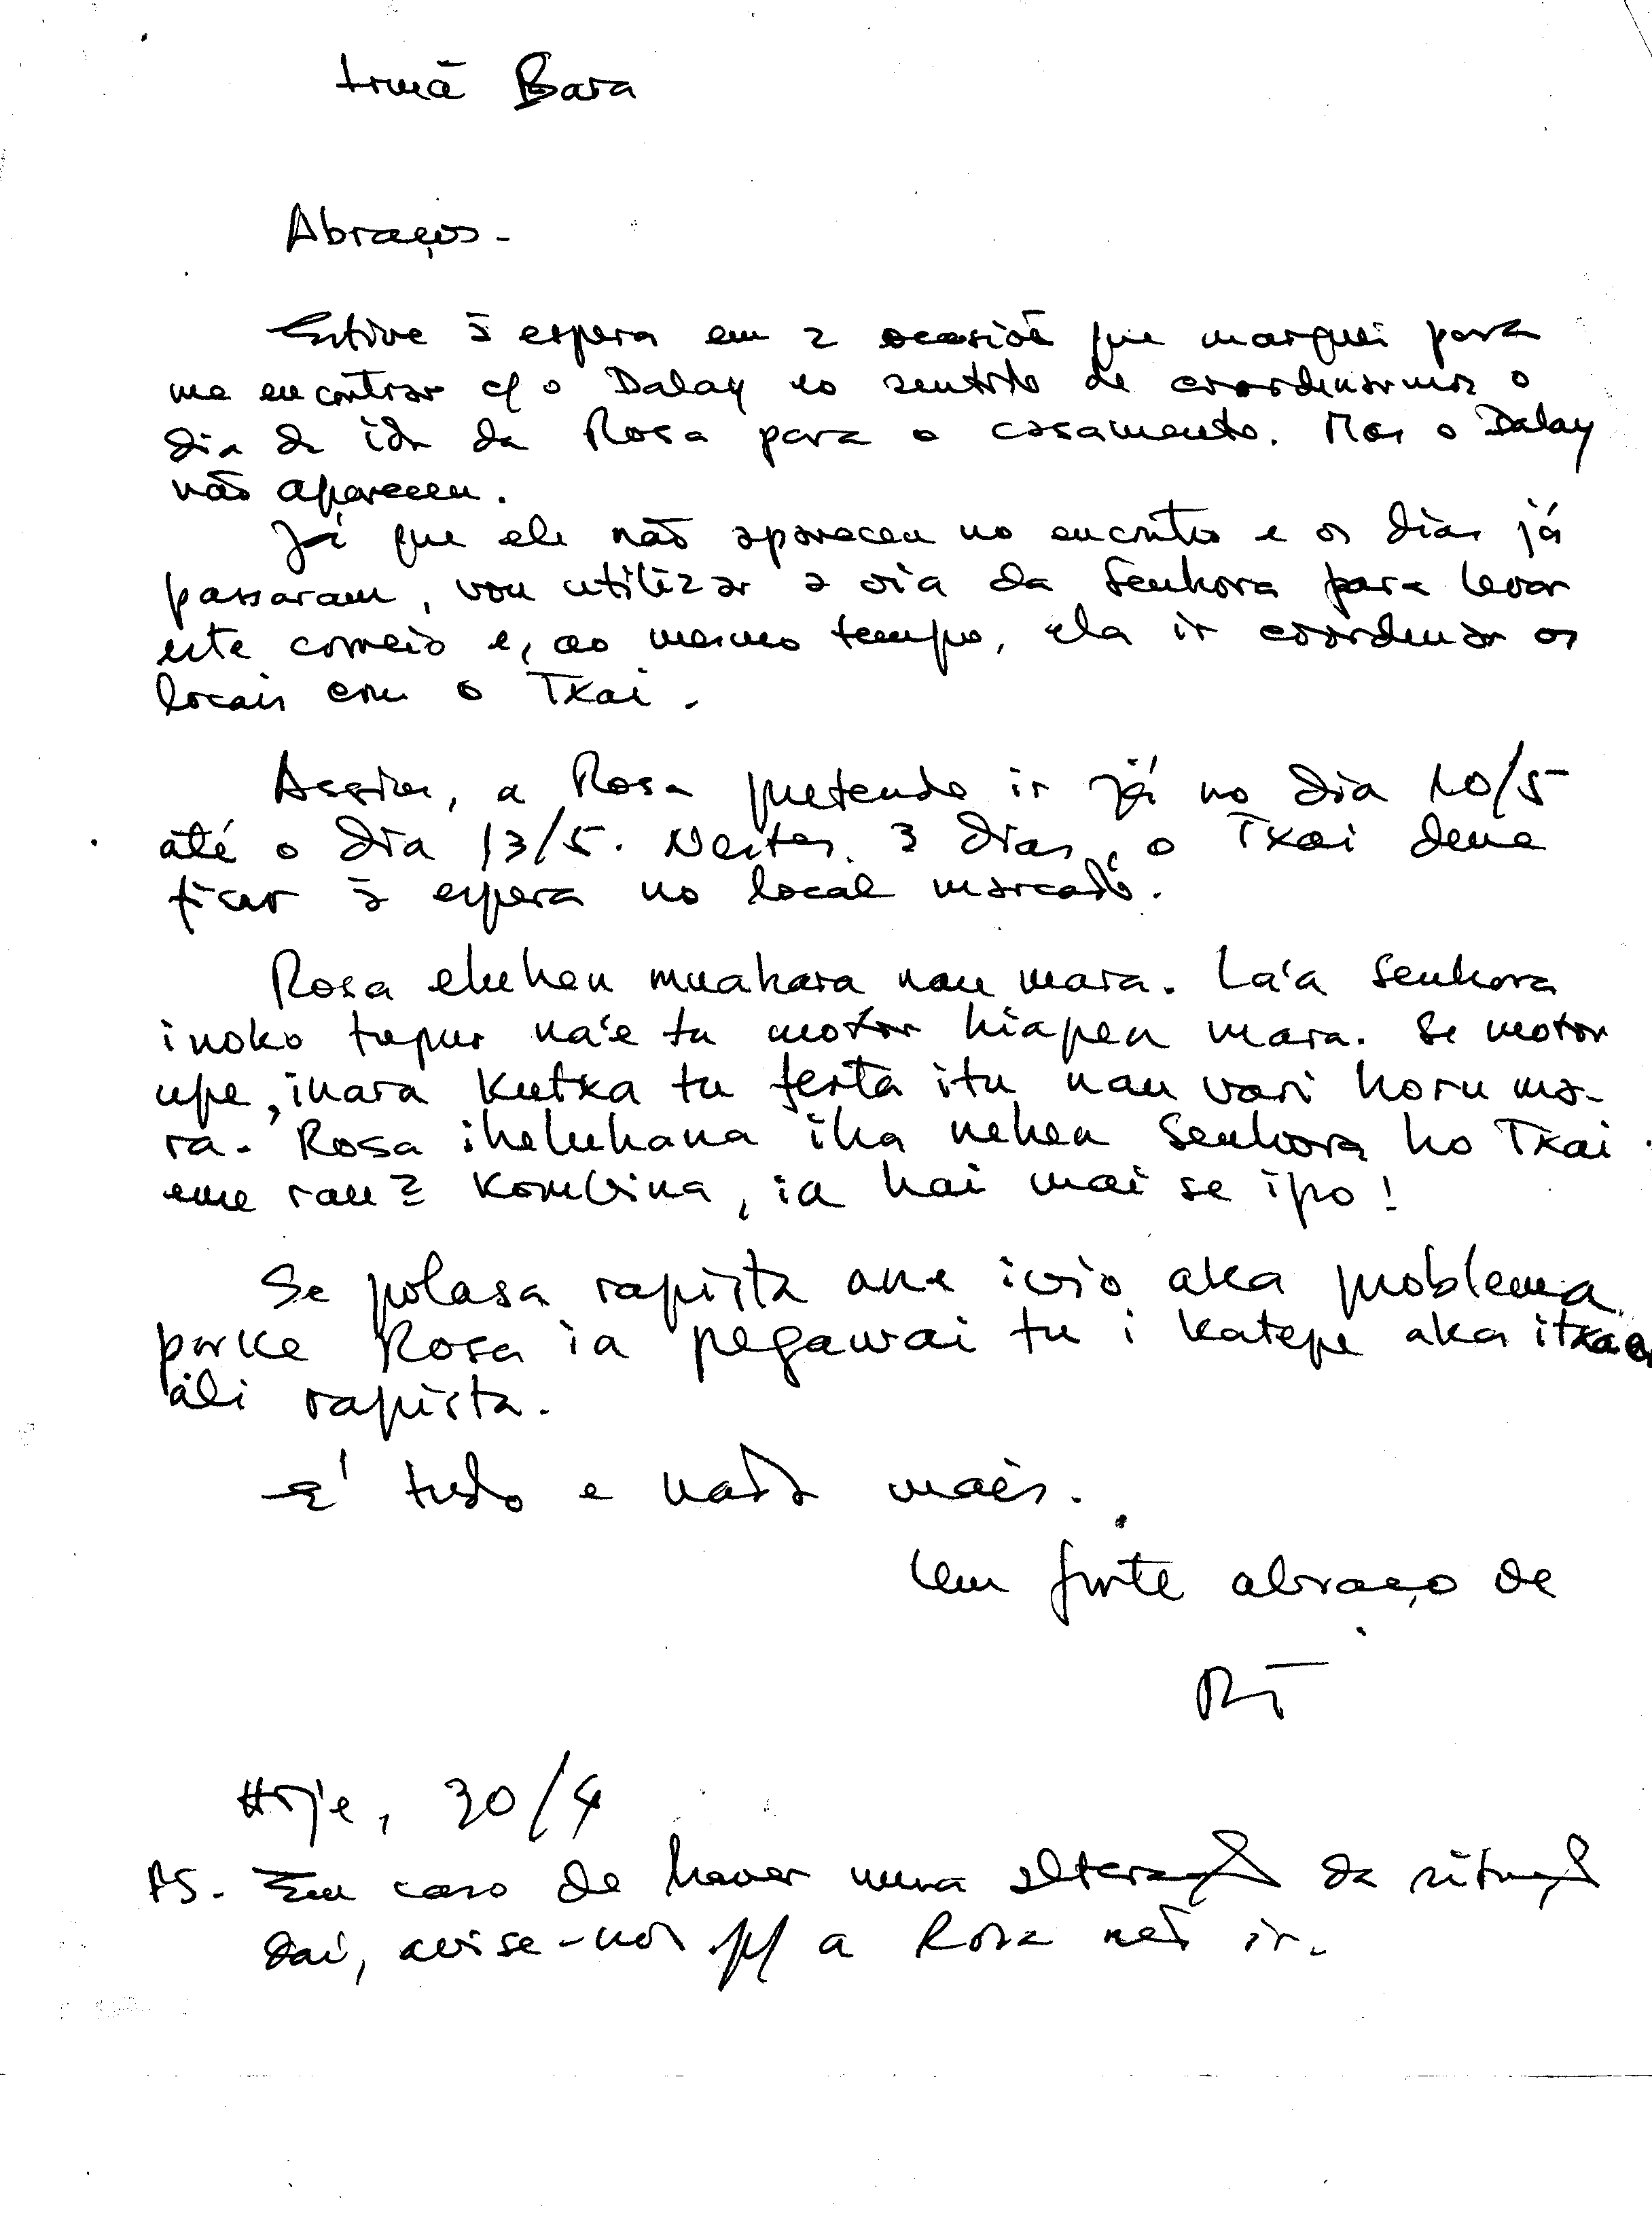 Irmã Bara
Abraços -
Estive à espera em 2 ocasiõe que marquei para
me encontrar c/ o Dalay no sentido de coordenarmos o
dia da ida da Rosa para o casamento. Mas o Dalay
não apareceu.
Já que ele não apareceu no encontro e os dias já
passaram, vou utilizar a via da Senhora para levar
este correio e, ao mesmo tempo, ela ir coordenar os
locais com o Txai.
Assim, a Rosa pretende ir já no dia 10/5
até o dia 13/5. Nestes 3 dias, o Txai deve
ficar à espera no local marcado.
Rosa eluhen muakara nau mara. La'a Senhora
inoko tupur na'e tu motor hiapen mara. Se motor
upe, inara Kutxa tu festa itu nau vari horu ma-
ra. Rosa iheluhana iha nehen Senhora ho Txai
eme rau 2 Kombina, ia hai mai se ipo!
Se polasa rapista ane ivio aka problema
porke Rosa ia pegawai tu i katepe aka itxa
áli rapista.
É tudo e nada mais.
Um forte abraço de
Hoje, 30/4
PS. Em caso de haver uma alteração da situação
daí, avise-nos p/ a Rosa não ir.